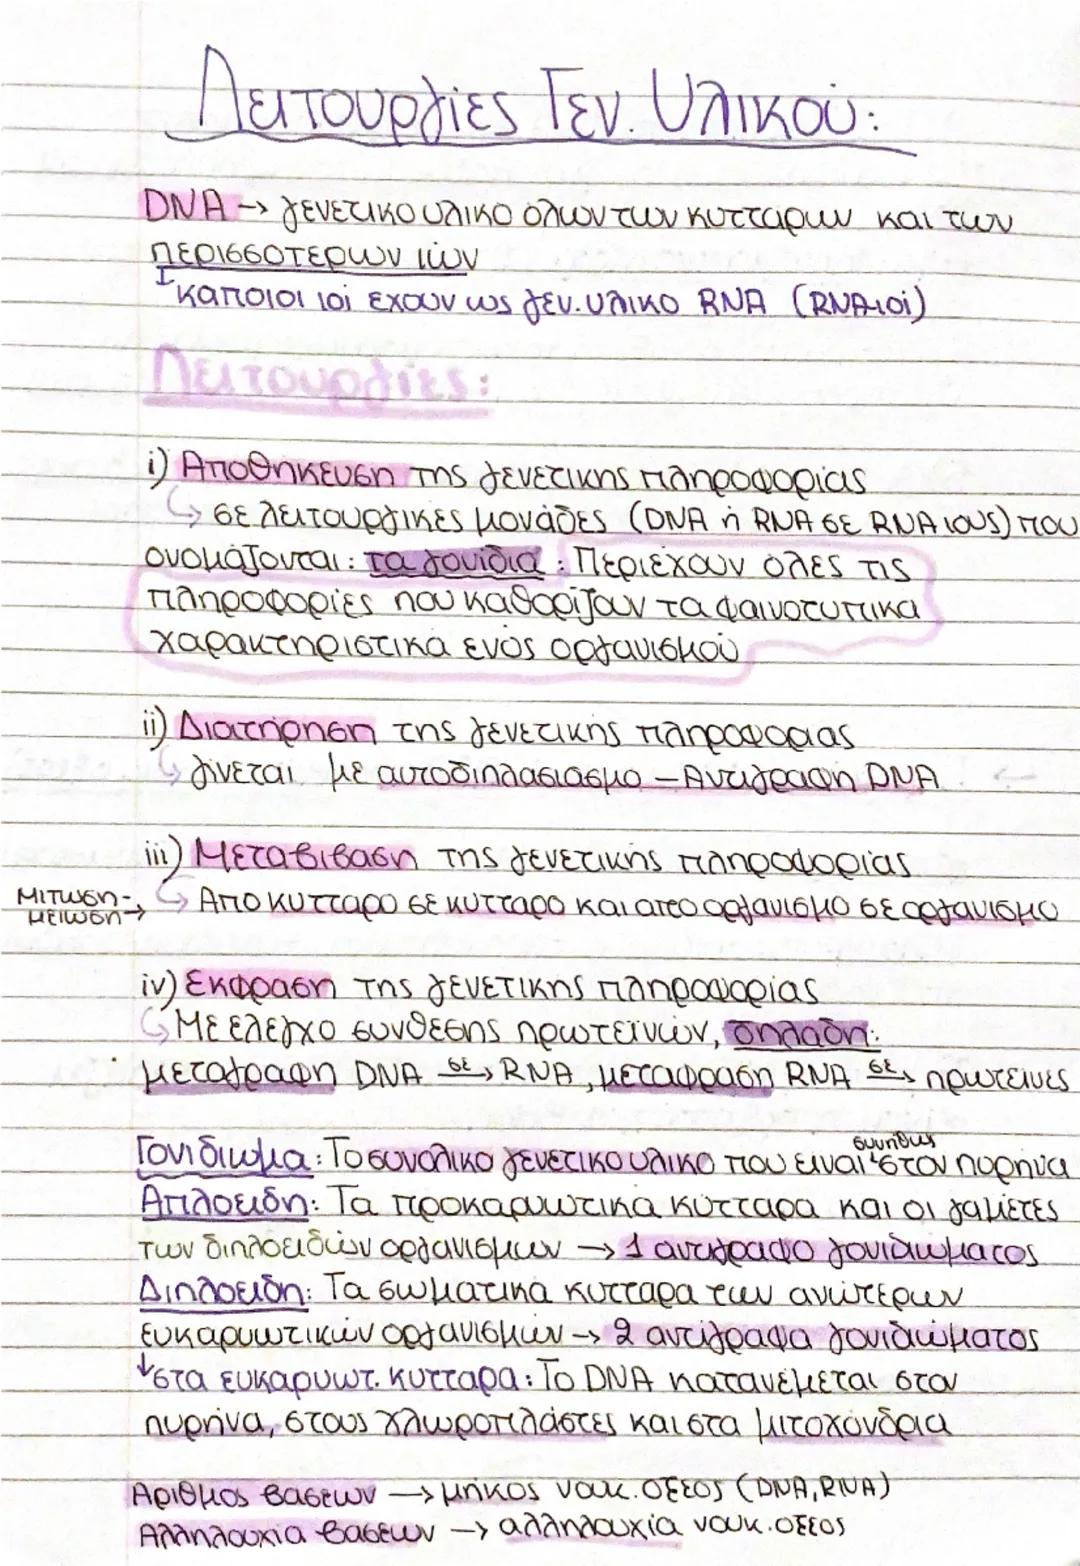 Λειτουργίες Γεν. Υλικού:
DNA → γενετικο υλικο όλων των κυτταρων και των
περισσοτερων ιών
καποιοι ιοί εχουν ως γεν. υλικο RNA (RNA ιοί)
Λειτουργίες:
i) Αποθηκευση της γενετικης πληροφορίας
↳ σε λειτουργικες μονάδες (DNA ή RNA σε RNA ιους) που
ονομάζονται: τα γονίδια: Περιέχουν όλες τις
πληροφορίες που καθορίζουν τα φαινοτυπικα
χαρακτηριστικά ενός οργανισμού
ii) Διατήρηση της γενετικής πληροφοριας
↳ γίνεται με αυτοδιπλασιασμο - Αντιγραφη DNA
iii) Μεταβιβαση της γενετικής πληροφορίας
Μιτωση-
μειωση→
↳ Απο κυτταρο σε κυτταρο και απο οργανισμο σε οργανισμο
iv) Εκφραση της γενετικης πληροφορίας
↳ Με ελεγχο συνθεσης πρωτεϊνών, δηλαδη:
μεταγραφη DNA σε→ RNA, μεταφραση RNA σε→ πρωτεινες
συνηθως
Γονιδιωμα: Το συνολικο γενετικο υλικο που ειναι στον πυρήνα
Απλοειδη: Τα προκαρυωτικα κυτταρα και οι γαμέτες
των διπλοειδών οργανισμων → 1 αντιγραφο γονιδιωματος
Διπλοειδη: Τα σωματικα κυτταρα των ανώτερων
ευκαρυωτικών οργανισμων → 2 αντίγραφα γονιδιώματος
↓στα ευκαρυωτ. κυτταρα: Το DNA κατανέμεται στον
πυρήνα, στους χλωροπλάστες και στα μιτοχόνδρια
Αριθμος βασεων → μηκος νουκ. οξεος (DNA, RNA)
Αλληλουχια βασεων → αλληλουχία νουκ. οξεος